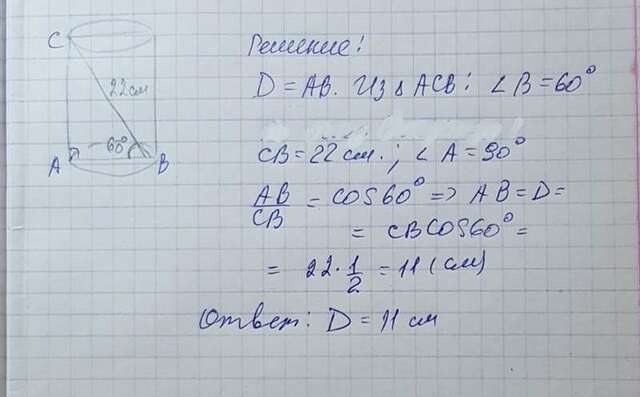 C
22см
60°
A
B
Решение!
D = AB. Из △ ACB: ∠B = 60°
CB = 22 см.; ∠A = 90°
AB/CB = cos60° => AB = D =
= CBcos60° =
= 22·1/2 = 11 (см)
Ответ: D = 11 см